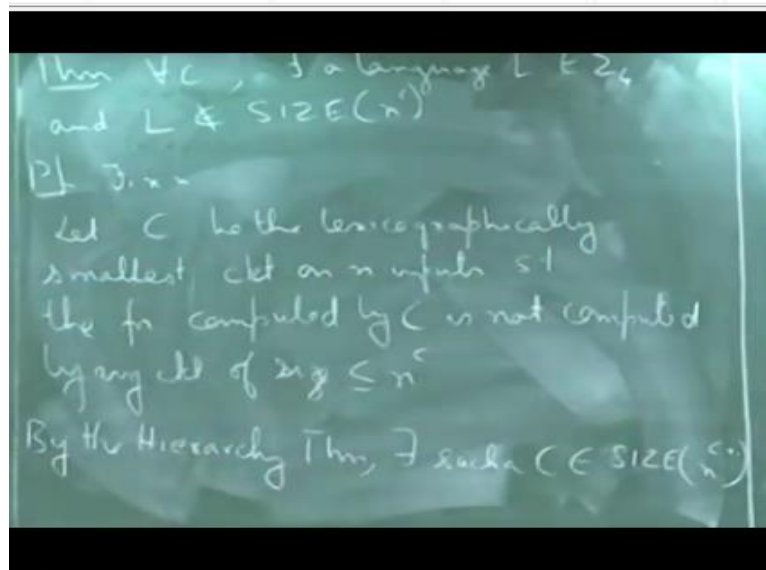 Thm ∀c, ∃ a language L ∈ Σ₄
and L ∉ SIZE(nᶜ)
Pf Fix n
Let C be the lexicographically
smallest ckt on n inputs st
the fn computed by C is not computed
by any ckt of size ≤ nᶜ
By the Hierarchy Thm, ∃ such a C ∈ SIZE(nᶜ